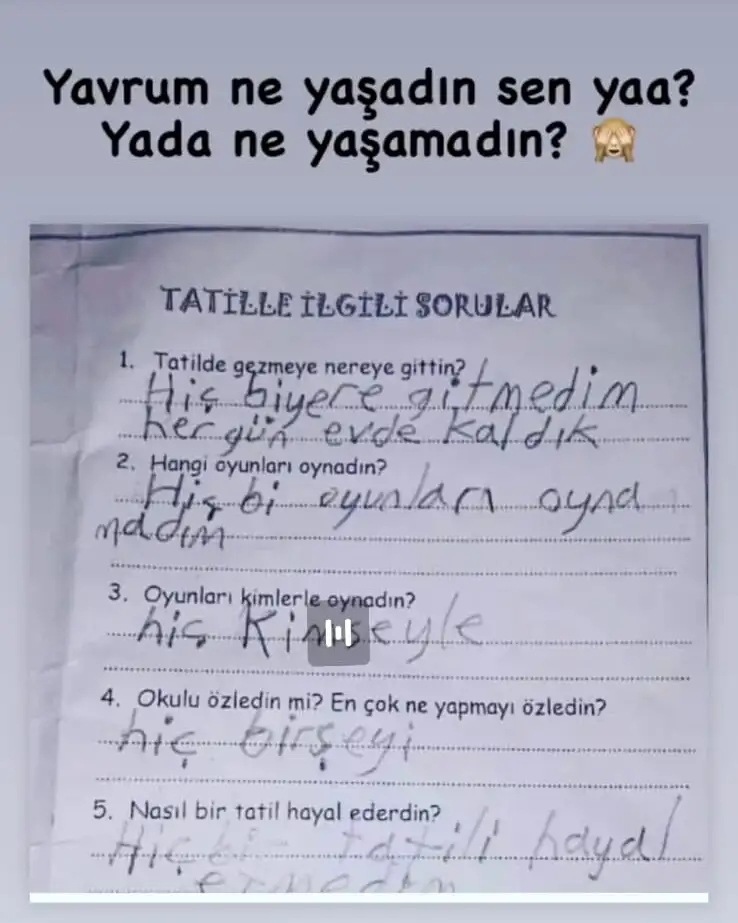 Yavrum ne yaşadın sen yaa?
Yada ne yaşamadın?
TATİLLE İLGİLİ SORULAR
1. Tatilde gezmeye nereye gittin?
Hiç biyere gitmedim
her gün evde kaldık
2. Hangi oyunları oynadın?
Hiç bi oyunları oyna
madım
3. Oyunları kimlerle oynadın?
hiç Kimseyle
4. Okulu özledin mi? En çok ne yapmayı özledin?
hiç birşeyi
5. Nasıl bir tatil hayal ederdin?
Hiçbir tatili hayal
etmedim